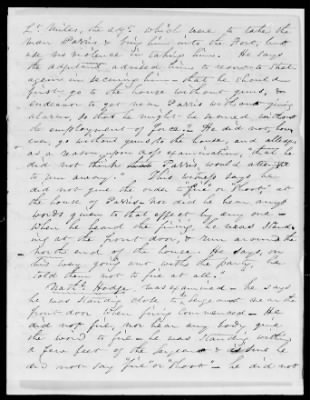 Lt. Miles, the adjt. which were to take the
man Parris & bring him into the Post, but
use no violence in taking him. He says
the adjutant advised him to resort to strat-
agem in securing him - that he should
first go to the house without guns, &
endeavor to get near Parris without giving
alarm, so that he might be secured without
the employment of force. He did not how-
ever, go without guns to the house, and alleges
as a reason, upon cross examination, "that he
did not think Parris would attempt
to run away." This witness says he
did not give the order to "fire" or "shoot" at
the house of Parris nor did he hear any
words given to that effect by any one -
When he heard the firing he was stand-
ing at the front door, & ran around the
north end of the house. He says, on
his way going out with the party, he
told them not to fire at all.
Nathl. Hodge was examined - he says
he was standing close to Sergeant near the
front door when firing commenced - He
did not fire, nor hear any body give
the word to fire - he was standing within
a few feet of the Sergeant & he
did not say "fire" or "shoot" - he did not